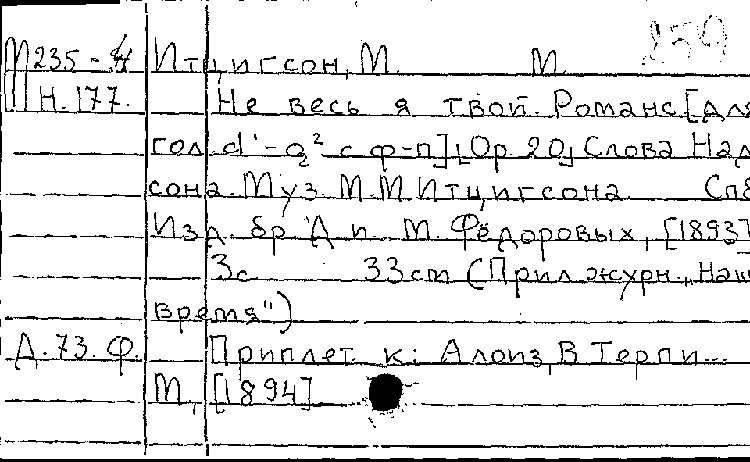 259
М235-4 Итцигсон, М. М.
Н.177. Не весь я твой. Романс [для
гол d'-g² с ф-п] [Ор 20] Слова Над
сона. Муз М.М.Итцигсона СпБ
Изд. бр А и М. Фёдоровых, [1893]
3с 33cm (Прил журн. „Наш
время")
Д.73.Ф. Приплет. к: Алоиз, В Терпи...
М, [1894]